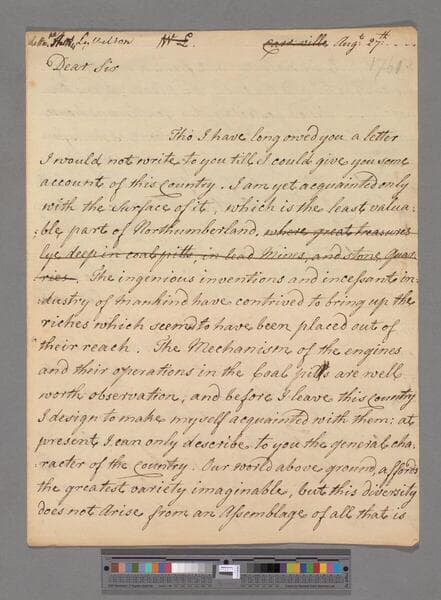 Wilson Cass-ville Augt. 27th....
1761
Dear Sir
Tho I have long owed you a letter
I would not write to you till I could give you some
account of this Country. I am yet acquainted only
with the Surface of it, which is the least valua=
=ble part of Northumberland, where great treasures
lye deep in coal pitts, in Lead Mines, and stone Quar=
ries. The ingenious inventions and incessant in=
=dustry of Mankind have contrived to bring up the
riches which seemd to have been placed out of
their reach. The Mechanism of the engines
and their operations in the Coal pitts are well
worth observation, and before I leave this Country
I design to make myself acquainted with them; at
present I can only describe to you the general cha=
=racter of the Country. Our world above ground, affords
the greatest variety imaginable, but this diversity
does not Arise from an Assemblage of all that is